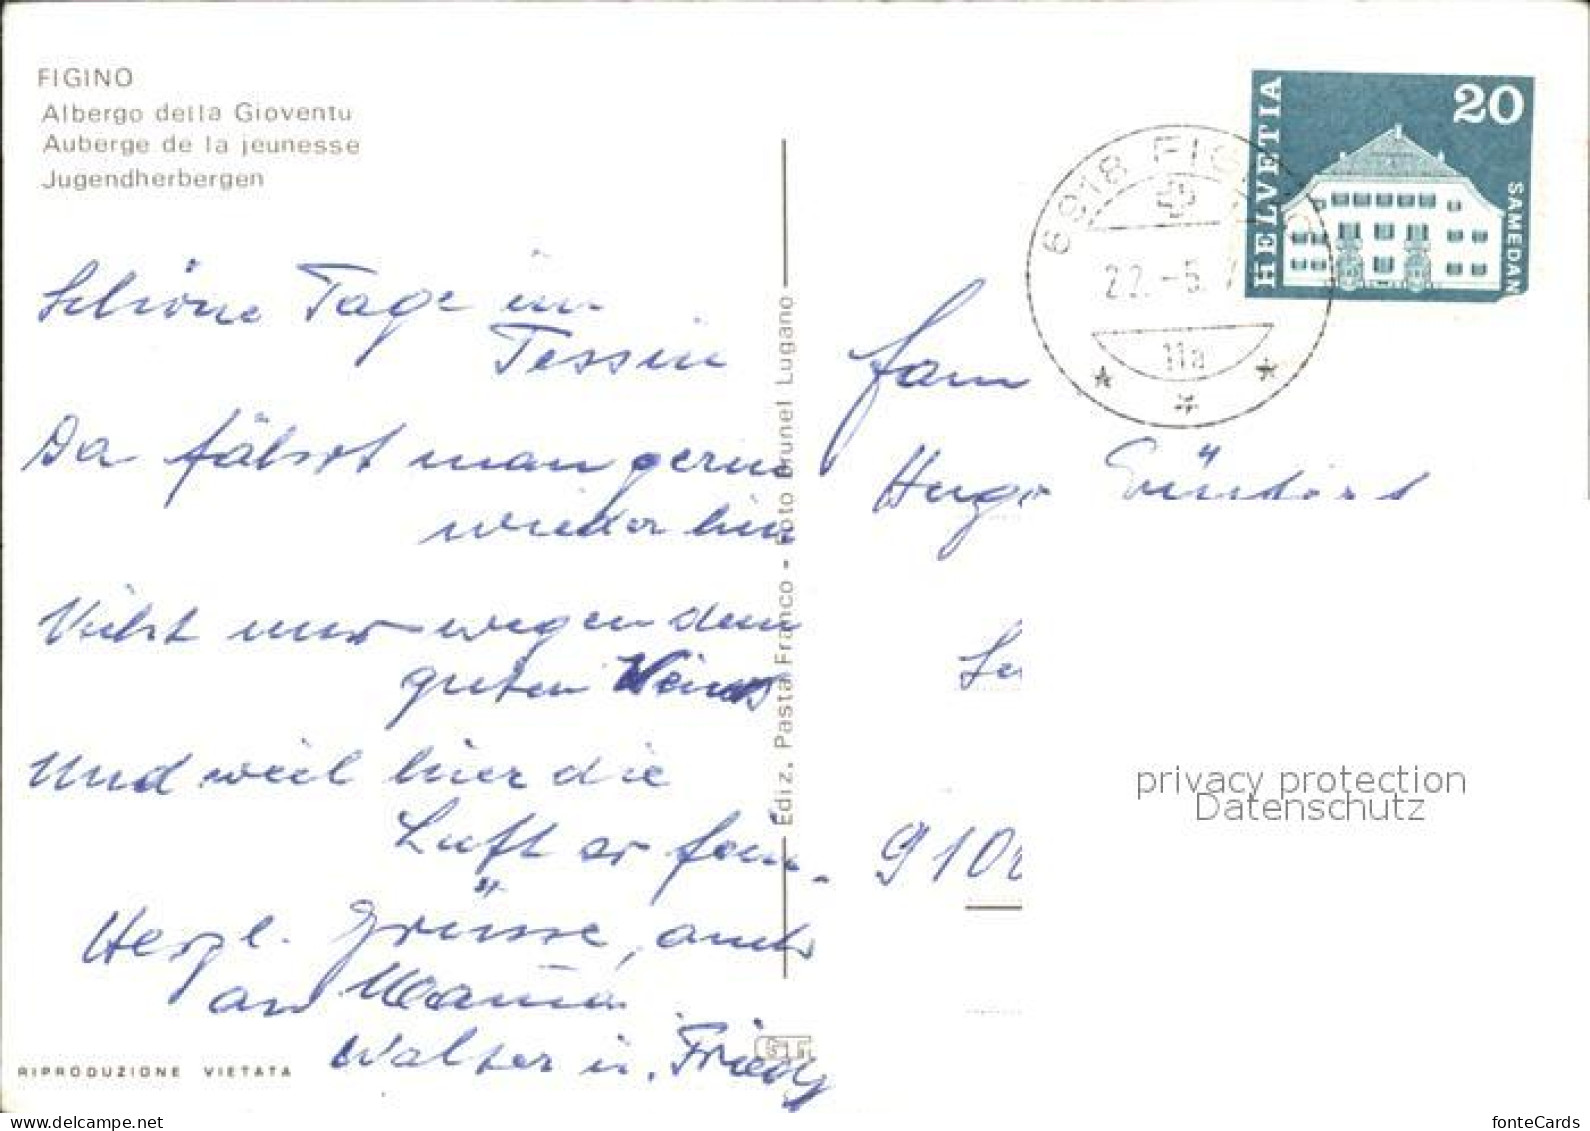 FIGINO
Albergo della Gioventu
Auberge de la jeunesse
Jugendherbergen
HELVETIA
20
SAMEDAN
6918 FIGINO
22.-5.7
11a
Schöne Tage im
Tessin
Da fährt man gerne
wieder hin
Nicht nur wegen dem
guten Wein
Und weil hier die
Luft so fein.
Herzl. Grüsse, auch
an Mama
Walter u. Friedy
Fam
Hugo
910
Ediz. Pasta Franco - Foto Brunel Lugano
GT
RIPRODUZIONE VIETATA
privacy protection
Datenschutz
fonteCards
delcampe.net